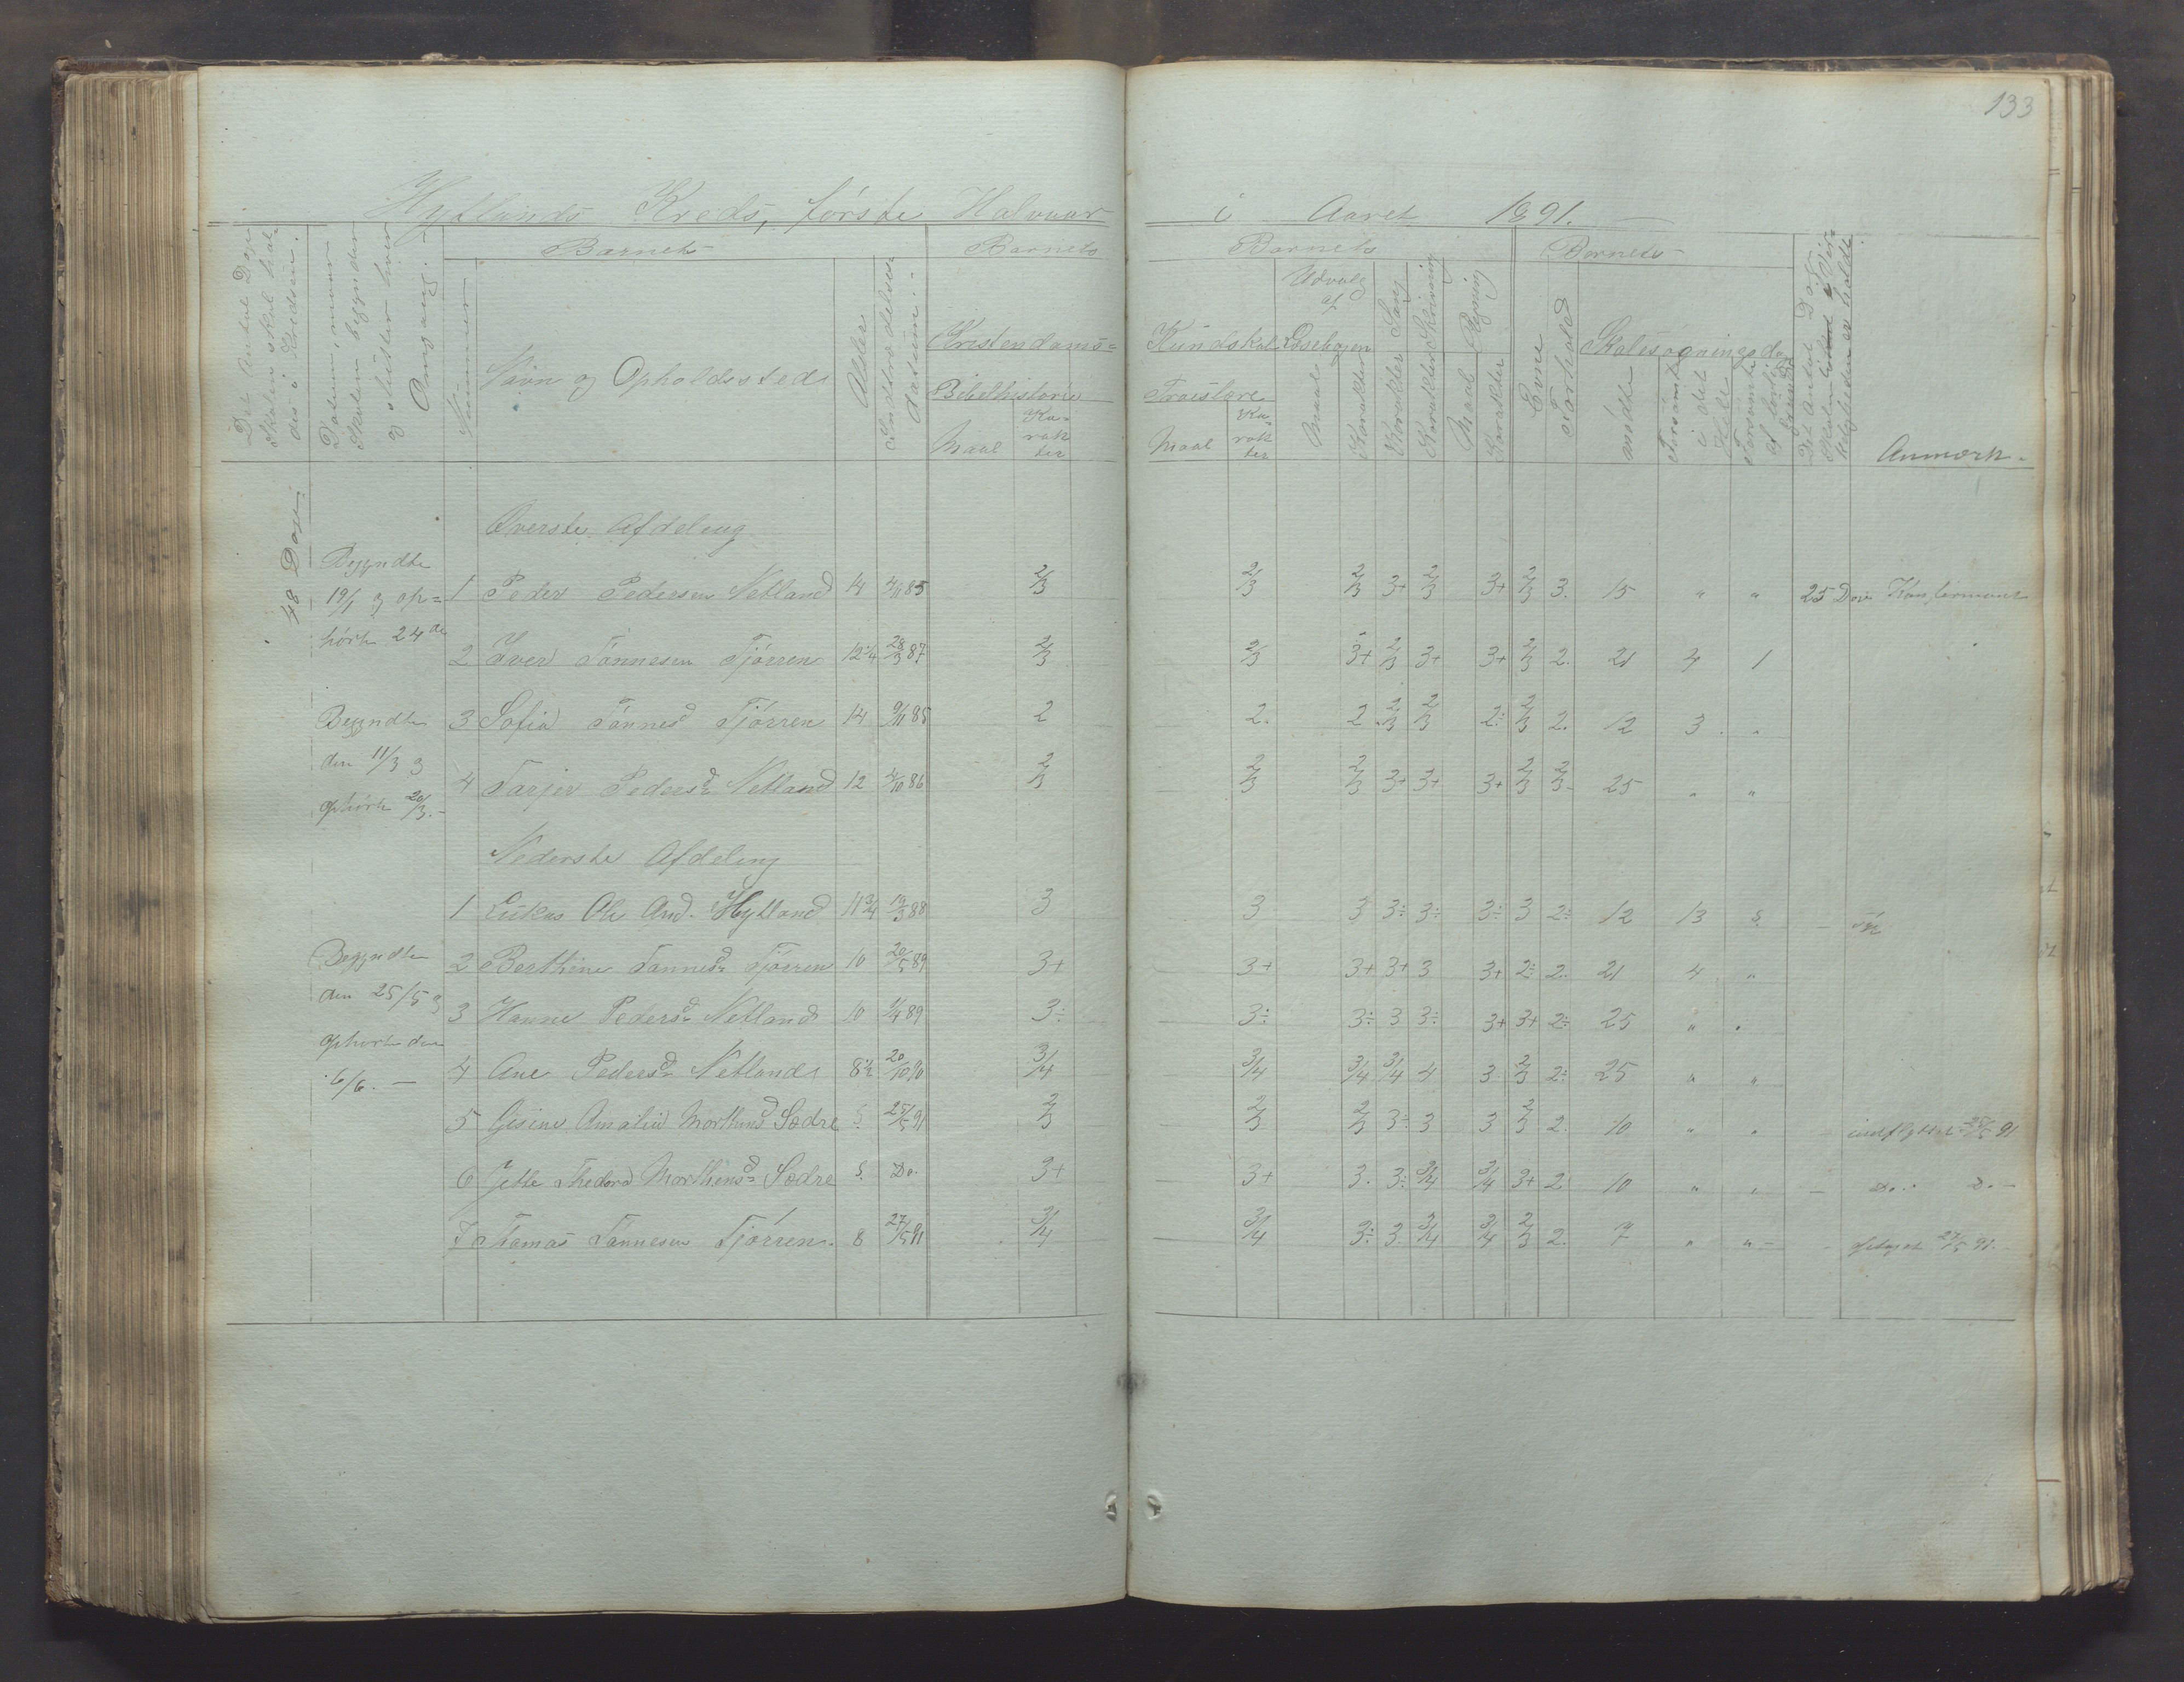 133
Hytlands Kreds, første Halvaar i Aaret 1891.
Det Antal Dage Skolen skal holdes i Kredsen.
Datum, naar Skolen begynder og slutter hver Omgang.
Barnets
Barnets
Barnets
Barnets
Nummer
Navn og Opholdssted
Alder
Indtrædelses datum.
Kristendoms=
Kundskab
Bibelhistorie
Troeslære
Maal
Karakter
Maal
Karakter
Udvalg af Læsebogen
Maal
Karakter
Sang
Karakter
Skrivning
Karakter
Regning
Maal
Karakter
Evne
Forhold
Skolesøgningsdage
mødte
Forsømte i det Hele
Forsømte af lovlig Grund
Det Antal Dage Skolen i Virkeligheden er holdt
Anmærk.
48 Dage
Øverste Afdeling
Begyndte
19/1 og op=
hørte 24de
1 Peder Pedersen Netland 14 4/11 85 2/3 2/3 2/3 3+ 2/3 3+ 2/3 3. 15 " " 25 Dage Konfirmant
2 Iver Tønnesen Tjørren 12 1/4 28/3 87 2/3 2/3 3+ 2/3 3+ 3+ 2/3 2. 21 4 1
Begyndte
den 11/3 og
ophørte 20/3.-
3 Sofia Tønnesd Tjørren 14 9/11 85 2 2. 2 2/3 2/3 2÷ 2/3 2. 12 3. "
4 Tarjer Pedersd Netland 12 4/10 86 2/3 2/3 2/3 3+ 3+ 3+ 2/3 2/3 25 " "
Nederste Afdeling
1 Lukas Ole And. Hytland 11 3/4 19/3 88 3 3 3 3÷ 3÷ 3÷ 3 2÷ 12 13 5
Begyndte
den 25/5 og
ophørte den
6/6. —
2 Berthine Tønnesd Tjørren 10 20/5 89 3+ 3+ 3+ 3+ 3 3+ 2÷ 2. 21 4 "
3 Hanne Pedersd Netland 10 1/4 89 3÷ 3÷ 3÷ 3 3÷ 3+ 3+ 2÷ 25 " "
4 Ane Pedersd Netland 8 1/2 20/10 90 3/4 3/4 3/4 3/4 4 3 2/3 2÷ 25 " "
5 Gesine Amalia Morthensd Sædre 25/5 91 2/3 2/3 2/3 3÷ 3 3 2/3 2. 10 " " indflyttet 25/5 91
6 Jette Thedora Morthensd Sædre Do. 3+ 3+ 3. 3÷ 3/4 3/4 3+ 2 10 " " Do. Do. -
7 Thomas Tønnesen Tjørren. 8 27/5 91 3/4 3/4 3÷ 3 3/4 3/4 2/3 2. 7 " " - optaget 27/5 91.